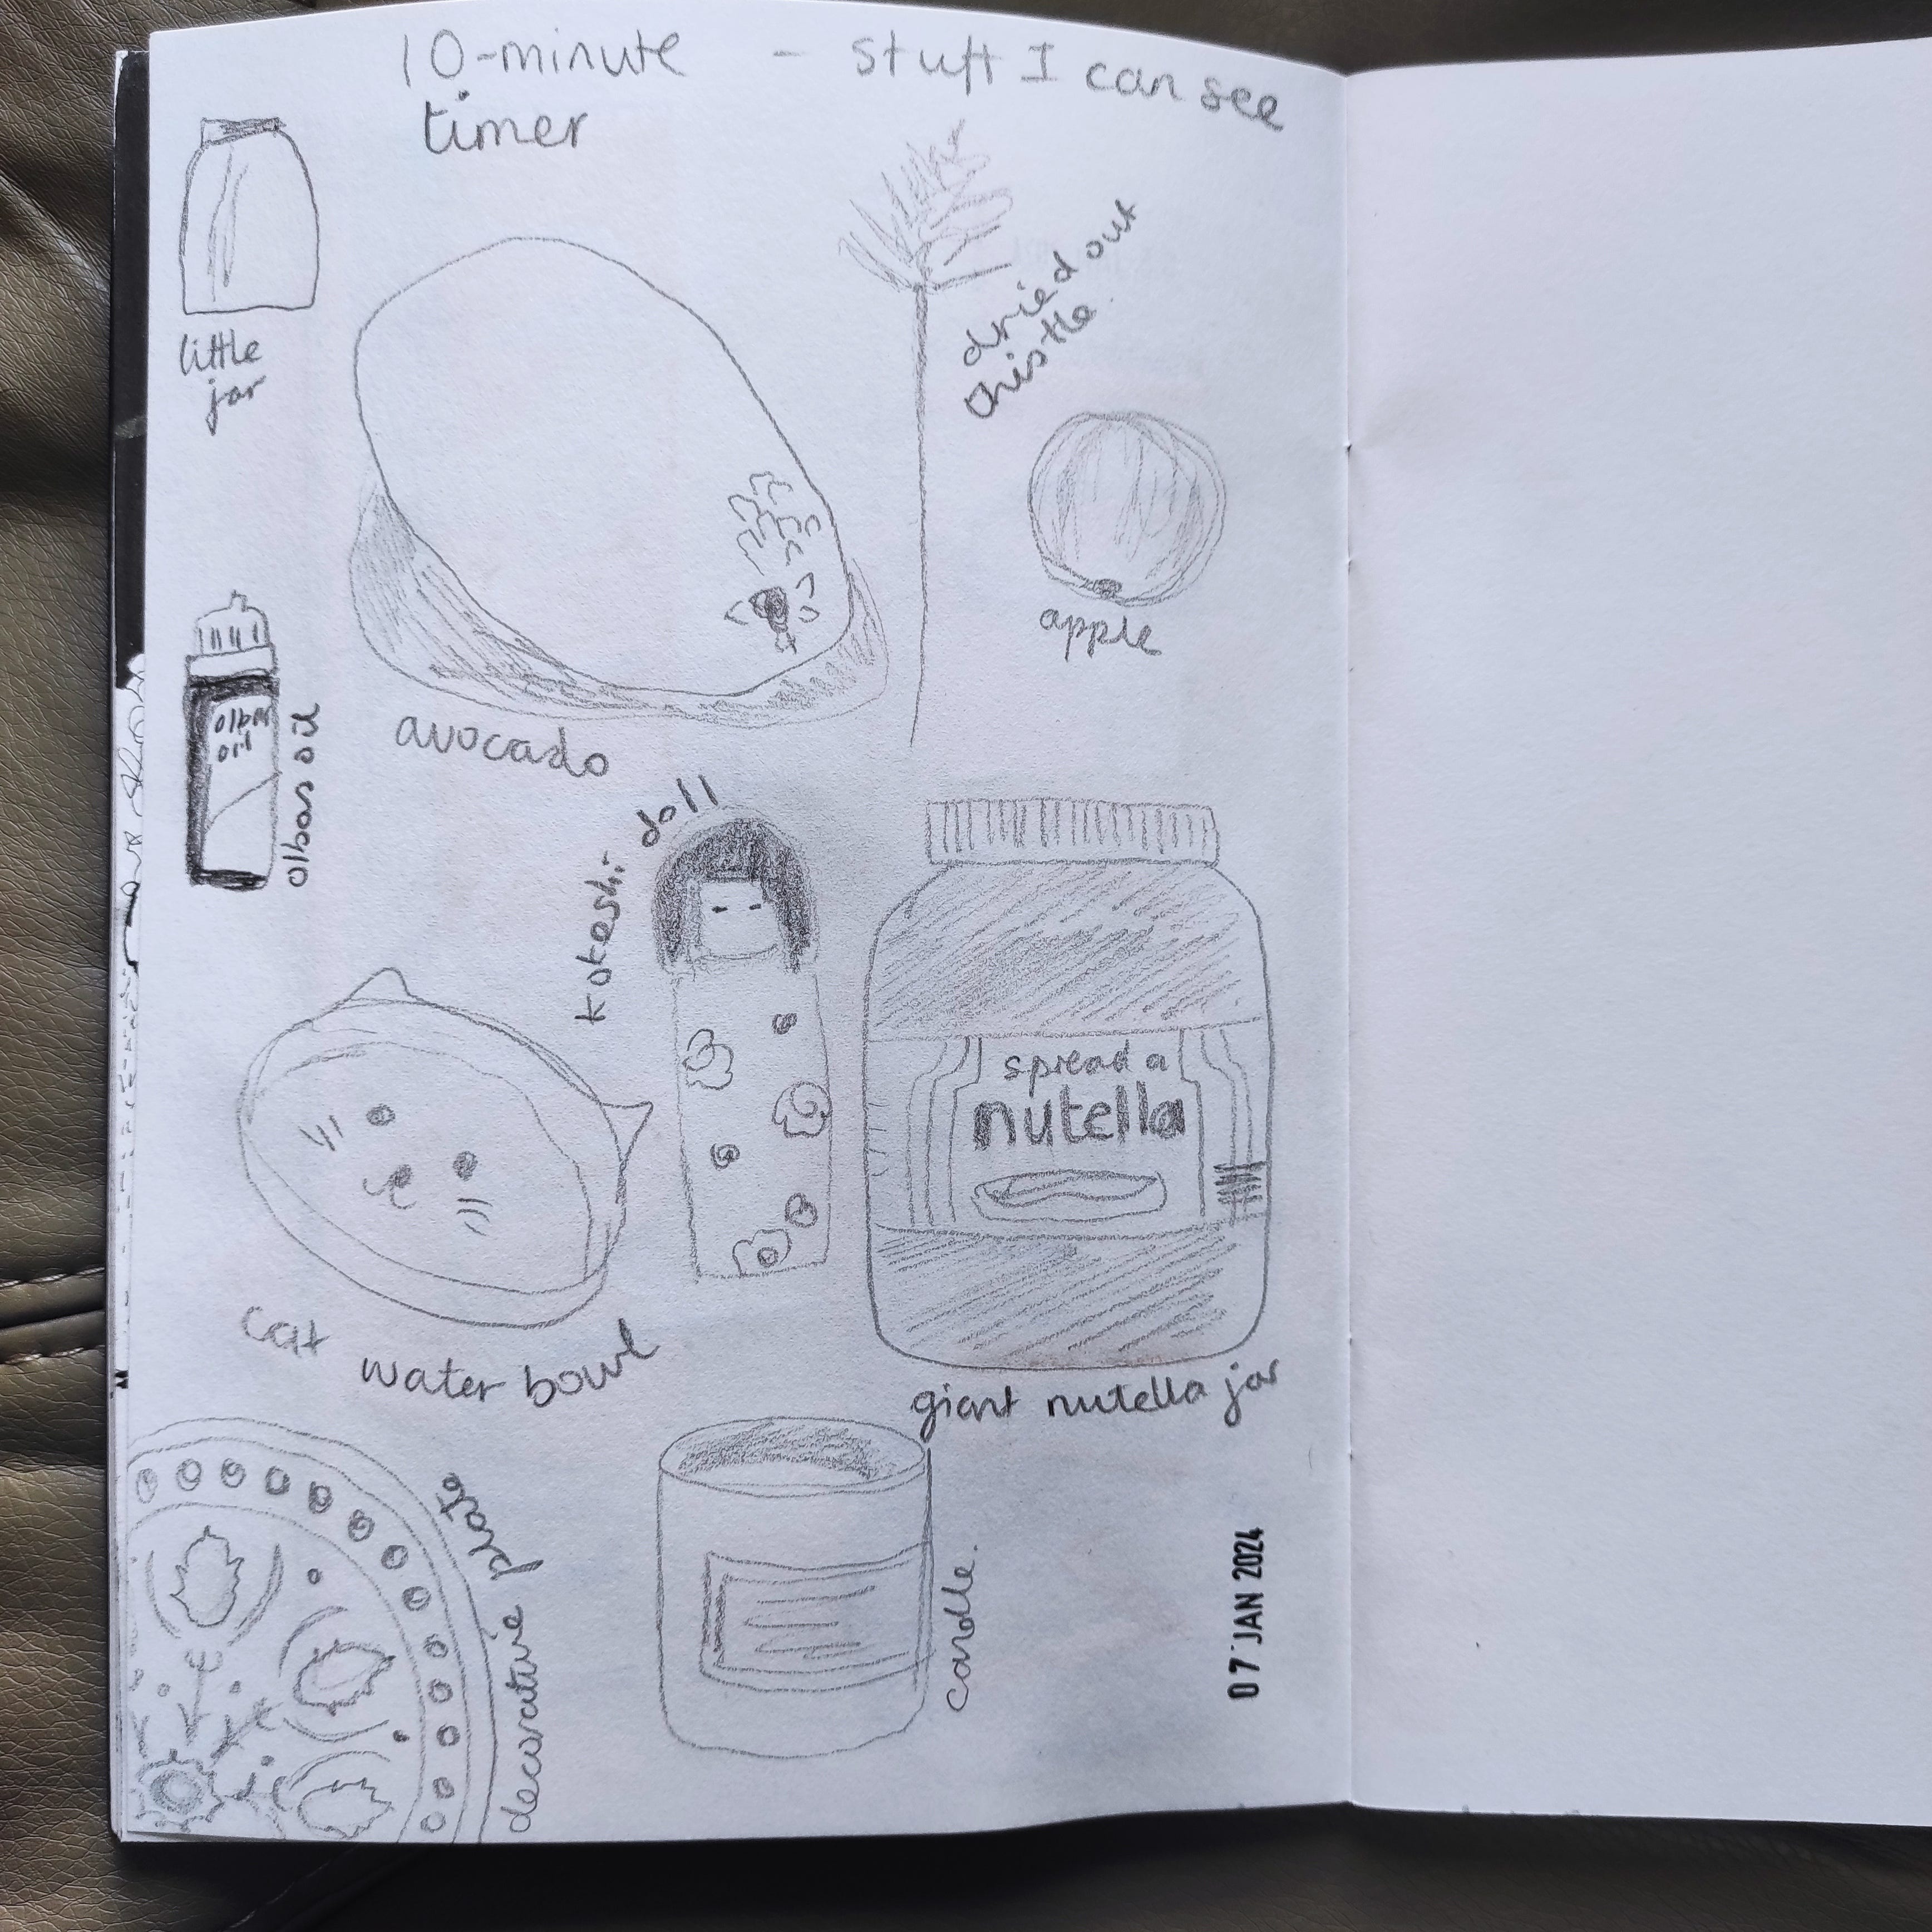 10-minute - stuff I can see
timer
little
jar
dried out
thistle.
apple
avocado
olbas
oil
olbas oil
kokeshi doll
spread a
nutella
cat water bowl
giant nutella jar
decorative plate
candle.
07 JAN 2024